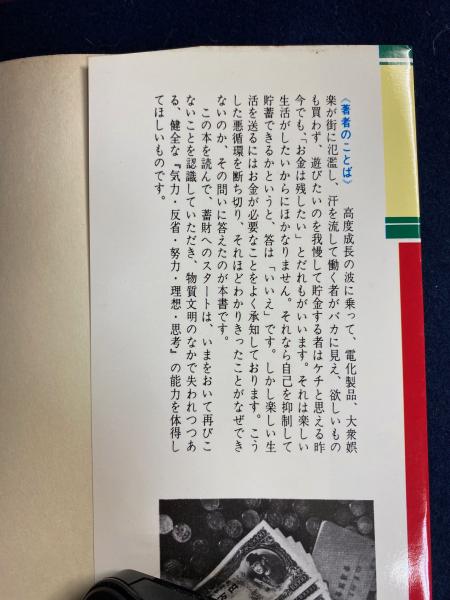 〈著者のことば〉
高度成長の波に乗って、電化製品、大衆娯
楽が街に氾濫し、汗を流して働く者がバカに見え、欲しいもの
も買わず、遊びたいのを我慢して貯金する者はケチと思える昨
今でも、「お金は残したい」とだれもがいいます。それは楽しい
生活がしたいからにほかなりません。それなら自己を抑制して
貯蓄できるかというと、答は「いいえ」です。しかし楽しい生
活を送るにはお金が必要なことをよく承知しております。こう
した悪循環を断ち切り、それほどわかりきったことがなぜでき
ないのか、その問いに答えたのが本書です。
この本を読んで、蓄財へのスタートは、いまをおいて再びこ
ないことを認識していただき、物質文明のなかで失われつつあ
る、健全な『気力・反省・努力・理想・思考』の能力を体得し
てほしいものです。